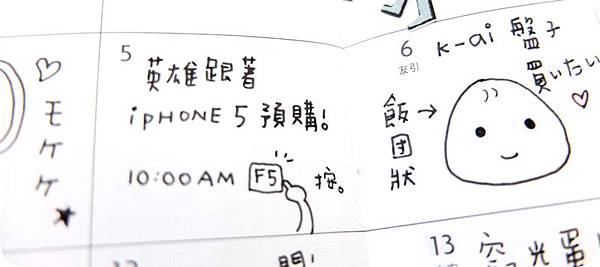 ♡モケケ★
5
英雄跟著
iPHONE 5 預購!
10:00AM F5 按。
6
友引
K-ai 盤子
買いたい
♡
飯団狀→
13